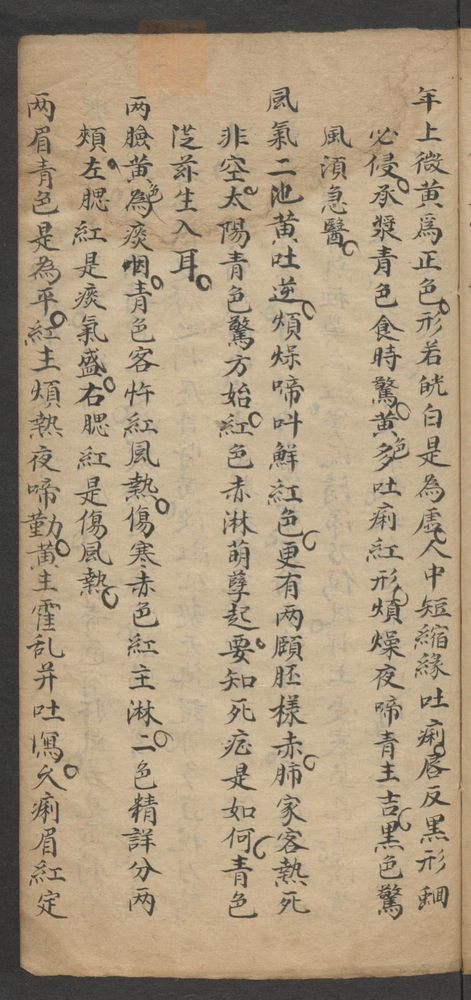 年上微黄爲正色形若皝白是為虛人中短縮緣吐痢唇反黑形蛔
必侵承漿青色食時驚黄色多吐痢紅形煩燥夜啼青主吉黑色驚
風須急醫
風氣二池黄吐逆煩燥啼叫鮮紅色更有两頤胚樣赤肺家客熱死
非空太陽青色驚方始紅色赤淋萌孽起要知死症是如何青色
従茲生入耳
两臉黄色為痰咽青色客忤紅風熱傷寒赤色紅主淋二色精詳分两
頰左腮紅是痰氣盛右腮紅是傷風熱
两眉青色是為平紅主煩熱夜啼勤黄主霍乱并吐瀉久痢眉紅定